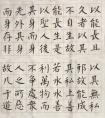 以能長且
久者以其
不自生故
能長生是
以聖人後
其身而身
先外其身
而身存非
以其無私
耶故能成
其私上善
若水水善
利萬物而
不爭處眾
人之所惡
故幾于道